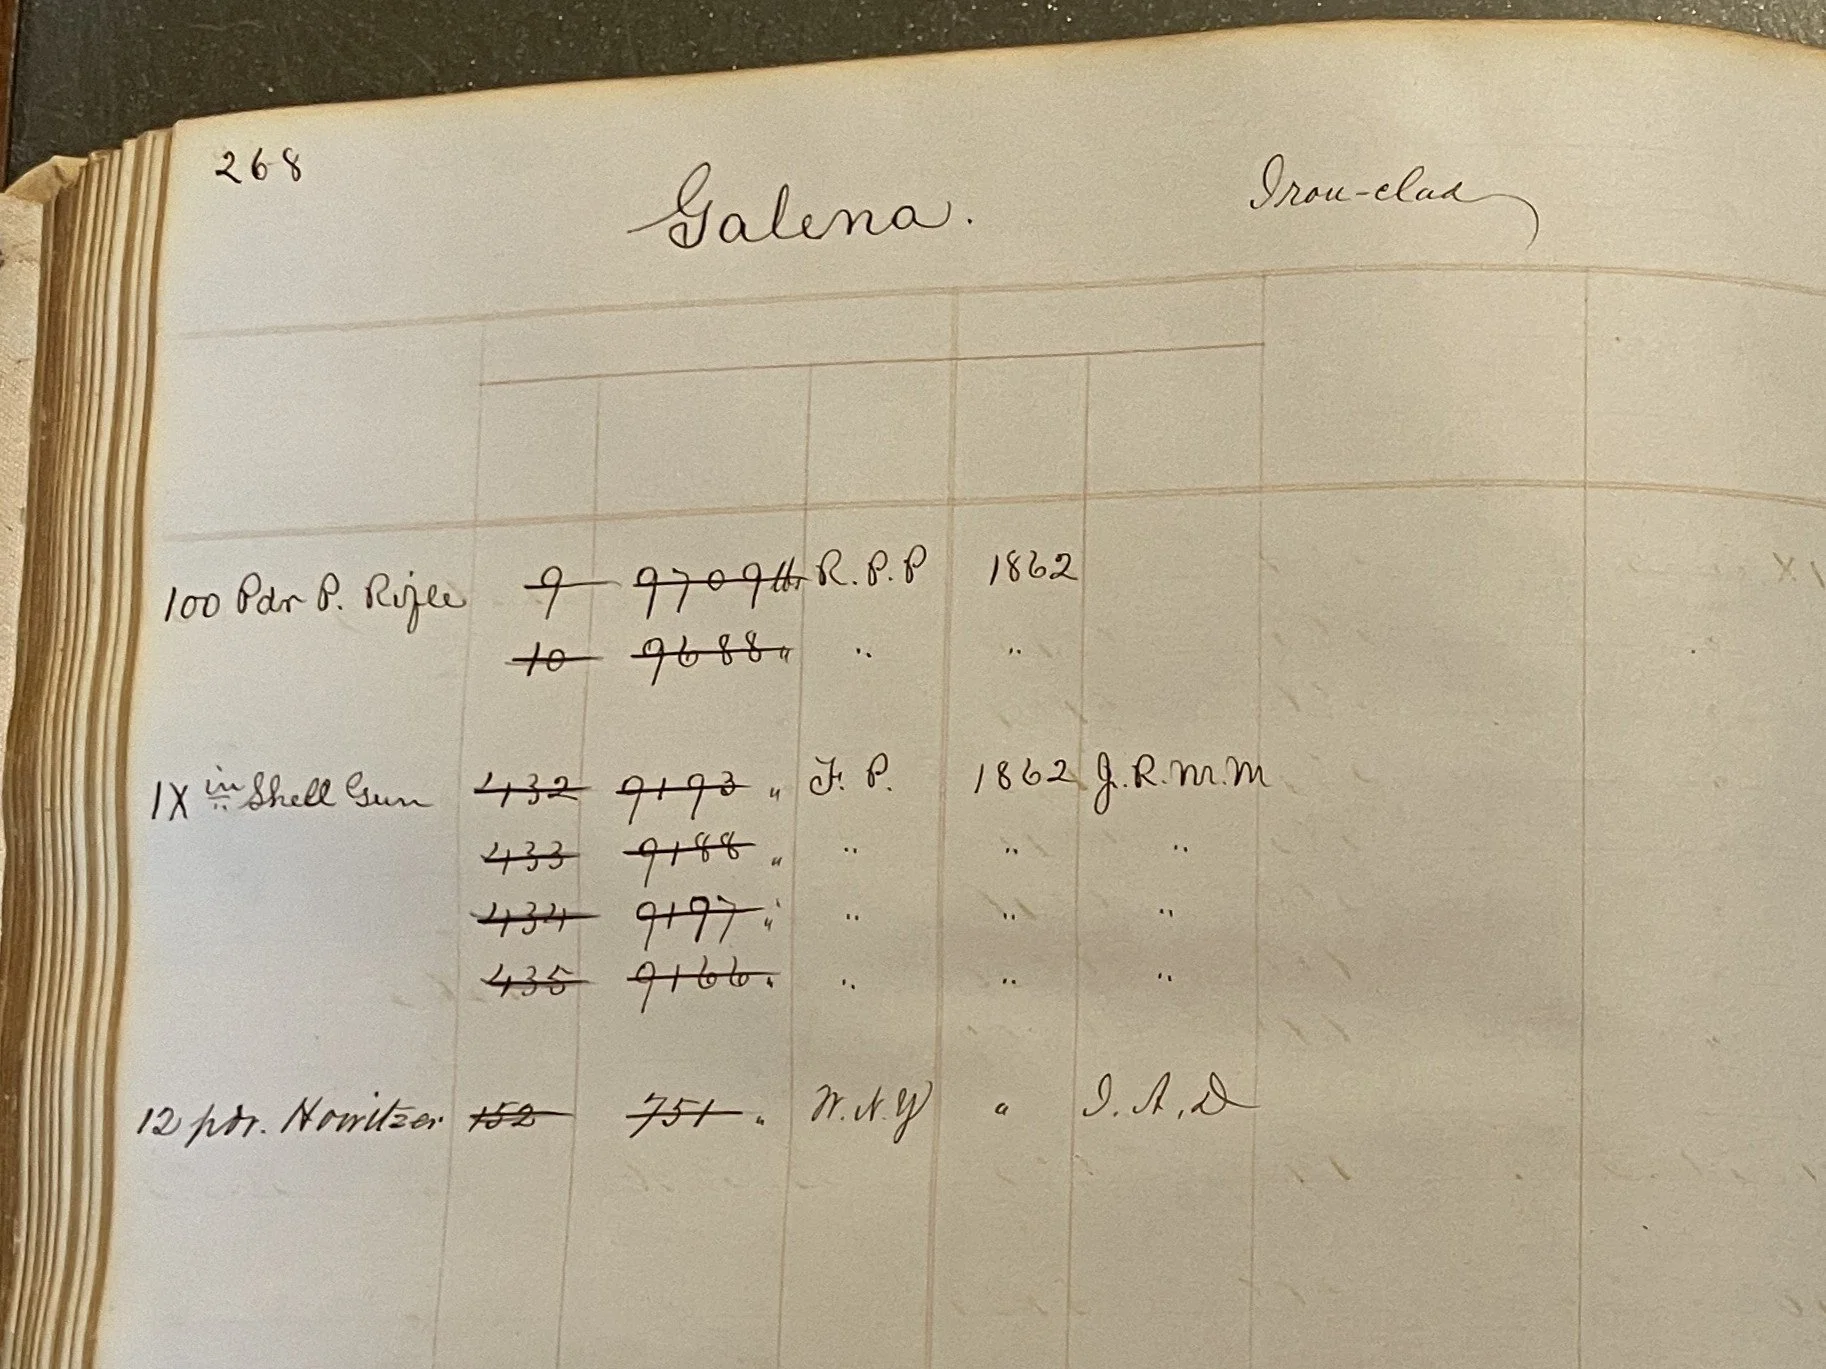 268
Galena.
Iron-clad
100 Pdr P. Rifle 9 9709 lbs R. P. P 1862
10 9688 " " "
IX in Shell Gun 432 9193 " F. P. 1862 J. R. M. M
433 9188 " " " "
434 9197 " " " "
435 9166 " " " "
12 pdr. Howitzer 152 751 " W. N. Y " I. A. D